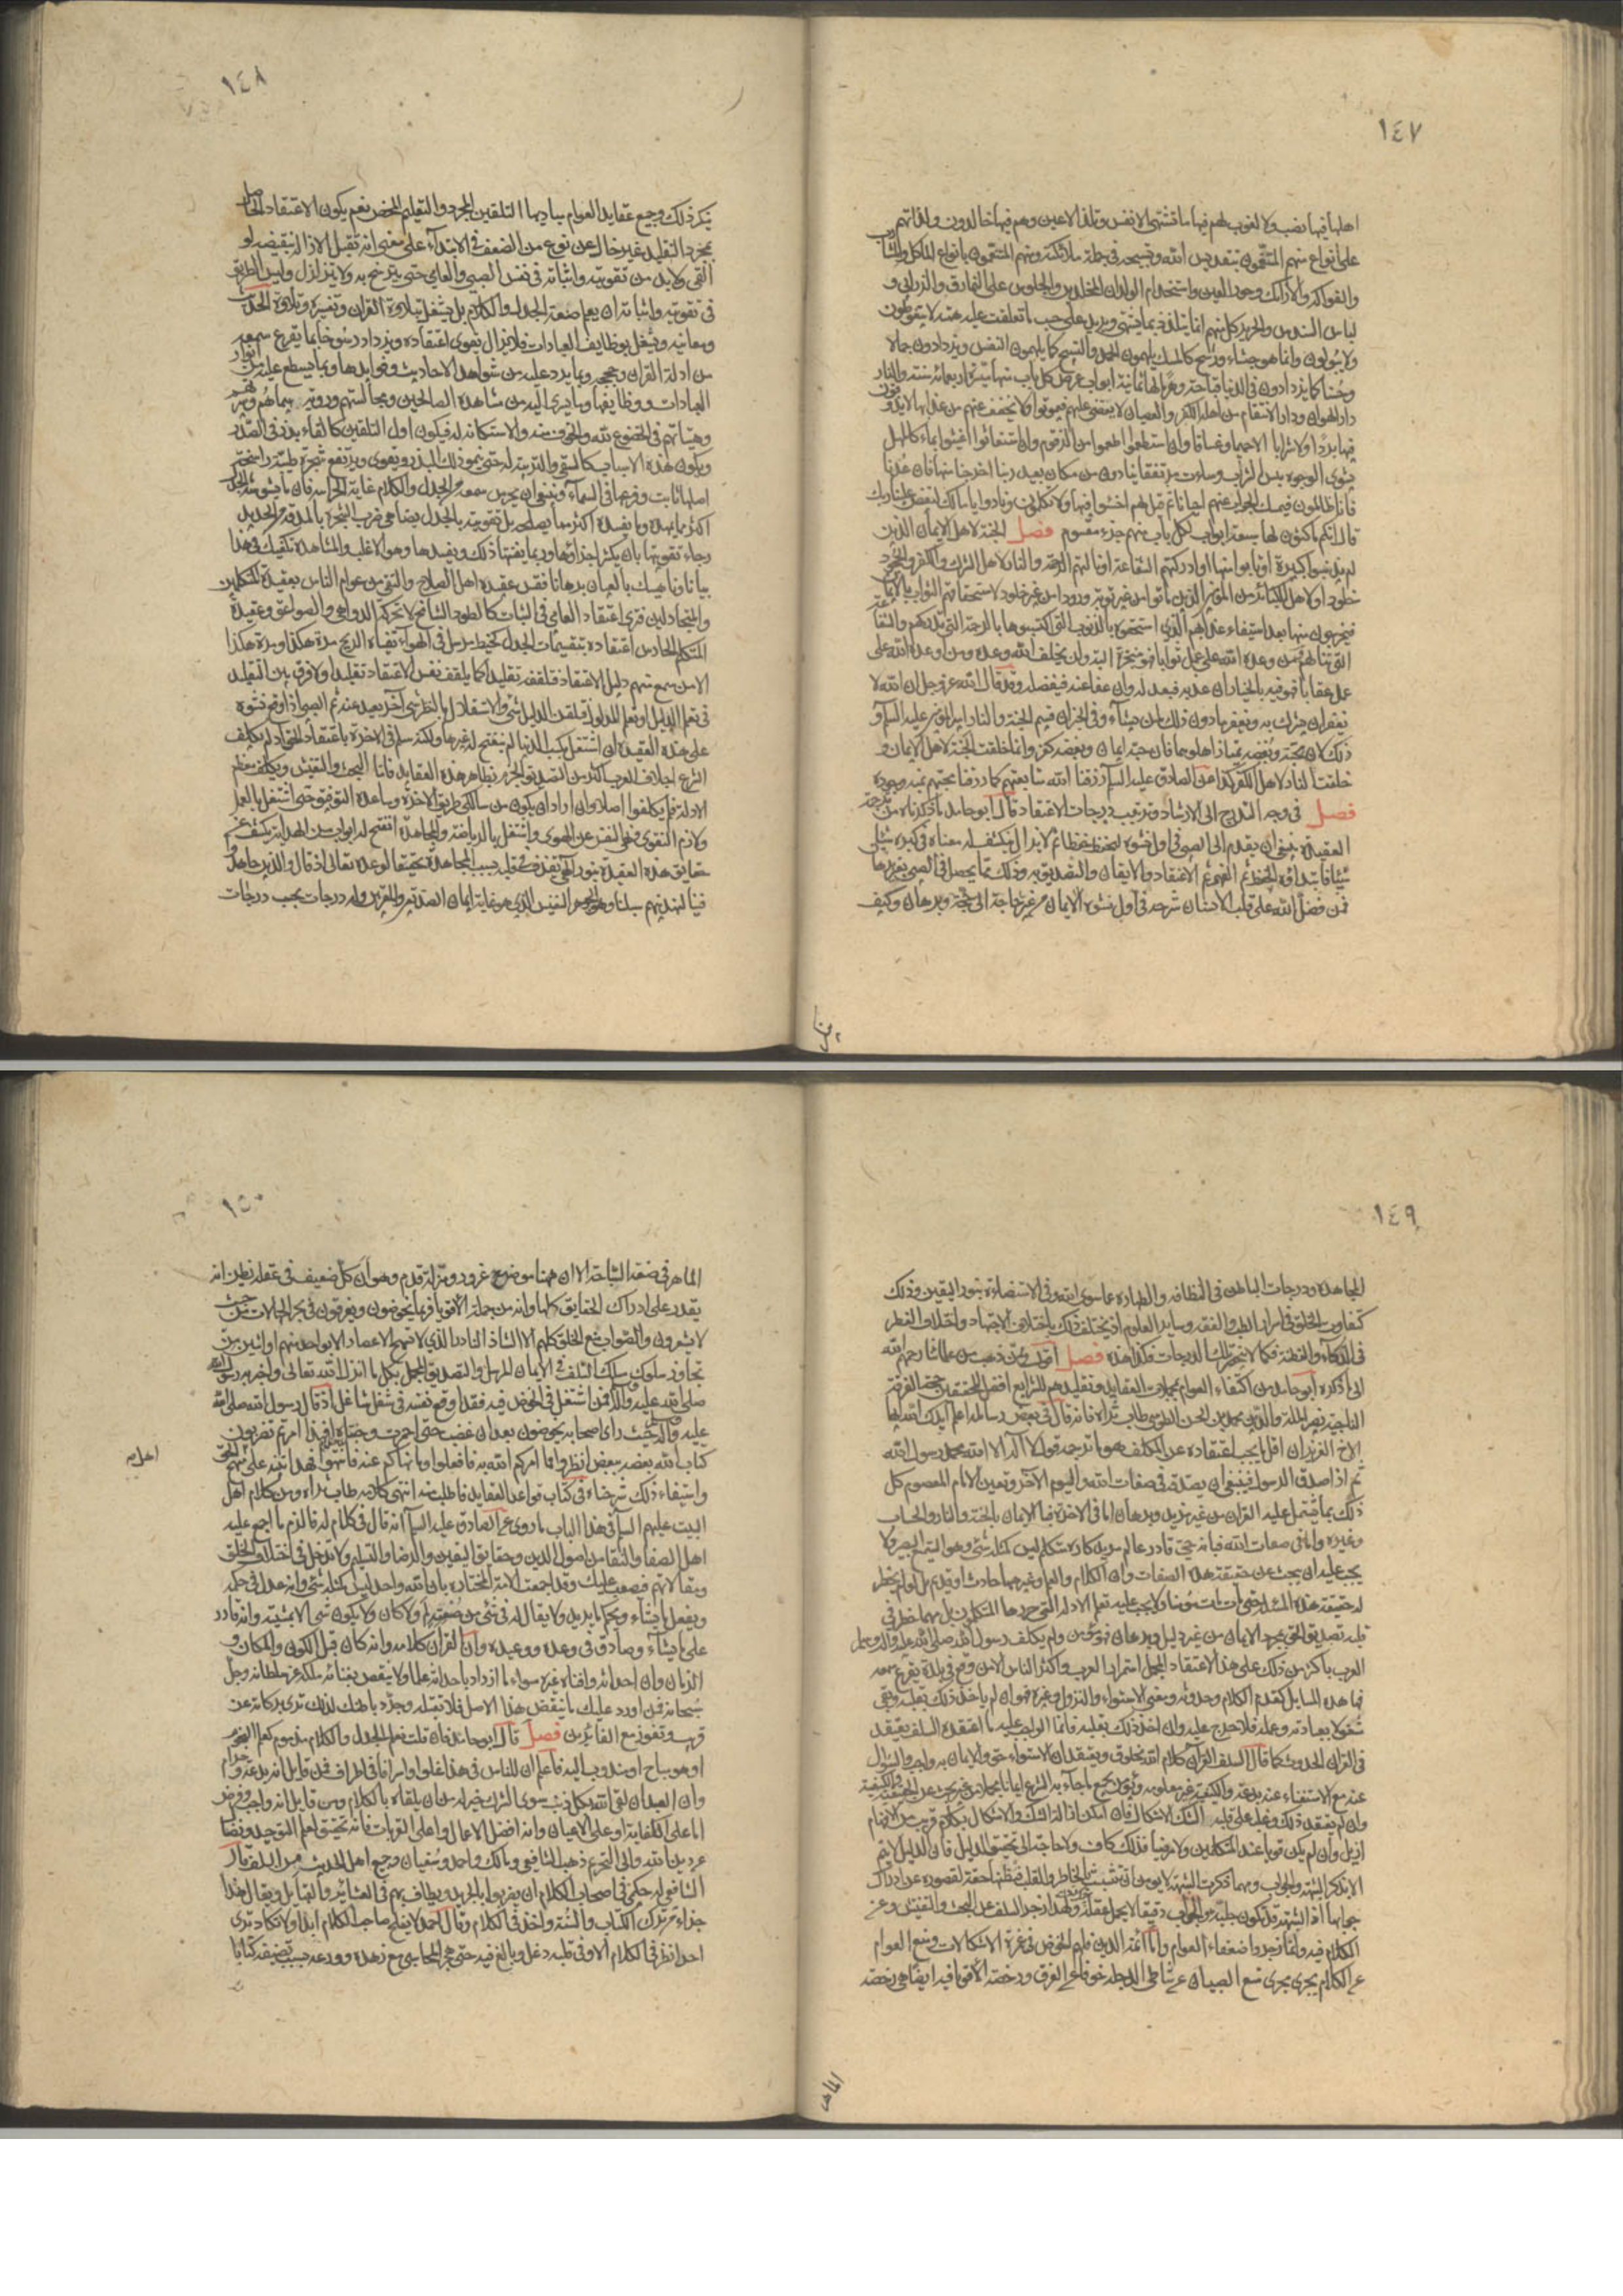 ١٤٧
اهلها فيها نصب ولا لغوب لهم فيها ما تشتهى الانفس وتلذ الاعين وهم فيها خالدون ولذاتهم
على انواع منهم المتنعمون بتقديس الله وتسبيحه فى جملة ملائكته ومنهم المتنعمون بانواع المآكل والمشارب
والفواكه والارائك وحور العين واستخدام الولدان المخلدين والجلوس على النمارق والزرابى و
لباس السندس والحرير كل منهم انما يتلذذ بما يشتهى ويريد على حسب ما تعلقت عليه همته لا يتغوطون
ولا يبولون وانما هو جشاء ورشح كالمسك يلهمون الحمد والتسبيح كما يلهمون النفس ويزدادون جمالا
وحسنا كما يزدادون فى الدنيا قباحة وهرما لها ثمانية ابواب عرض كل باب منها مسيرة اربعمائة سنة والنار
دار الهوان ودار الانتقام من اهل الكفر والعصيان لا يقضى عليهم فيموتوا ولا يخفف عنهم من عذابها لا يذوقون
فيها بردا ولا شرابا الا حميما وغساقا وان استطعموا اطعموا من الزقوم وان استغاثوا اغيثوا بماء كالمهل
يشوى الوجوه بئس الشراب وساءت مرتفقا ينادون من مكان بعيد ربنا اخرجنا منها فان عدنا
فانا ظالمون فيمسك الجواب عنهم احيانا ثم قيل لهم اخسئوا فيها ولا تكلمون ونادوا يا مالك ليقض علينا ربك
قال انكم ماكثون لها سبعة ابواب لكل باب منهم جزء مقسوم فصل الجنة لاهل الايمان الذين
لم يذنبوا كبيرة او تابوا منها او ادركتهم الشفاعة او نالتهم الرحمة والنار لاهل الشرك والكفر والجحود
خلودا ولاهل الكبائر من المؤمنين الذين ماتوا من غير توبة ورودا من غير خلود لاستحقاقهم الثواب بالايمان
فيخرجون منها بعد استيفاء عذابهم الذى استحقوه بالذنوب التى اكتسبوها بالرحمة التى تدركهم والشفاعة
التى تنالهم ومن وعده الله على عمل ثوابا فهو منجزه البتة وان يخلف الله وعده ومن اوعده الله على
عمل عقابا فهو فيه بالخيار ان عذبه فبعدله وان عفا عنه فبفضله وقد قال الله عز وجل ان الله لا
يغفر ان يشرك به ويغفر ما دون ذلك لمن يشاء وفى الخبر ان قسيم الجنة والنار امير المؤمنين عليه السلام و
ذلك لان بمحبته وبغضه يمتاز اهلوهما فان حبه ايمان وبغضه كفر وانما خلقت الجنة لاهل الايمان و
خلقت النار لاهل الكفر كذا عن الصادق عليه السلام رزقنا الله شفاعتهم كما رزقنا محبتهم بمنه وجوده
فصل فى وجه التدريج الى الارشاد وترتيب درجات الاعتقاد قال ابو حامد ما ذكرناه من ترجمة
العقيدة ينبغى ان يقدم الى الصبى فى اول نشوه ليحفظه حفظا ثم لا يزال ينكشف له معناه فى كبره شيئا
شيئا فابتداؤه الحفظ ثم الفهم ثم الاعتقاد والايقان والتصديق به وذلك مما يحصل فى الصبى بغير برهان
فمن فضل الله على قلب الانسان شرحه فى اول نشوه للايمان من غير حاجة الى حجة وبرهان وكيف
١٤٨
ينكر ذلك وجميع عقايد العوام مباديها التلقين المجرد والتقليد المحض نعم يكون الاعتقاد الحاصل
بمجرد التقليد غير خال عن نوع من الضعف فى الابتداء على معنى انه يقبل الازالة بنقيضه لو
القى ولا بد من تقويته واثباته فى نفس الصبى والعامى حتى يترسخ به ولا يتزلزل وليس الطريق
فى تقويته واثباته ان يعلم صنعة الجدل والكلام بل يشتغل بتلاوة القران وتفسيره وتلاوة الحديث
ومعانيه ويشتغل بوظايف العبادات فلا يزال يقوى اعتقاده ويزداد رسوخا بما يقرع سمعه
من ادلة القران وحججه وبما يرد عليه من شواهد الاحاديث وفوايدها وبما يسطع عليه من انوار
العبادات ووظايفها وبما يسرى اليه من مشاهدة الصالحين ومجالستهم ورؤية سيماهم وسيرتهم
وهيئاتهم فى الخضوع لله والخوف منه والاستكانة له فيكون اول التلقين كالقاء بذر فى الصدر
ويكون لهذه الاسباب كالسقى والتربية له حتى ينمو ذلك البذر ويقوى ويرتفع شجرة طيبة راسخة
اصلها ثابت وفرعها فى السماء وينبغى ان يحرس سمعه من الجدل والكلام غاية الحراسة فان ما يشوشه الجدل
اكثر مما يمهده وما يفسده اكثر مما يصلحه بل تقويته بالجدل يضاهى ضرب الشجرة بالمدقة من الحديد
رجاء تقويتها بان يكثر اجزاؤها وربما يفتتها ذلك ويفسدها وهو الاغلب والمشاهدة تكفيك فى هذا
بيانا وناهيك بالعيان برهانا فقس عقيدة اهل الصلاح والتقى من عوام الناس بعقيدة المتكلمين
والمجادلين فترى اعتقاد العامى فى الثبات كالطود الشامخ لا تحركه الدواهى والصواعق وعقيدة
المتكلم الحارس اعتقاده بتقسيمات الجدل كخيط مرسل فى الهواء تفيئه الريح مرة هكذا ومرة هكذا
الا من سمع منهم دليل الاعتقاد فتلقفه تقليدا كما يلقف نفس الاعتقاد تقليدا ولا فرق بين التقليد
فى تعلم الدليل او تعلم المدلول فتلقن الدليل شئ والاستقلال بالنظر شئ آخر بعيد عنه ثم الصبى اذا وقع نشوه
على هذه العقيدة ان اشتغل بكسب الدنيا لم ينفتح له غيرها ولكنه سلم فى الاخرة باعتقاد الحق اذ لم يكلف
الشرع اجلاف العرب اكثر من التصديق الجزم بظاهر هذه العقايد فاما البحث والتفتيش وتكلف نظم
الادلة فلم يكلفوا اصلا وان اراد ان يكون من سالكى طريق الاخرة وساعده التوفيق حتى اشتغل بالعمل
ولازم التقوى ونهى النفس عن الهوى واشتغل بالرياضة والمجاهدة انفتح له ابواب من الهداية يكشف عن
حقايق هذه العقيدة بنور الهى يقذف فى قلبه بسبب المجاهدة تحقيقا لوعده تعالى اذ قال والذين جاهدوا
فينا لنهدينهم سبلنا وهو الجوهر النفيس الذى هو غاية ايمان الصديقين والمقربين وله درجات بحسب درجات
١٤٩
المجاهدة ودرجات الباطن فى النظافة والطهارة عما سوى الله وفى الاستضاءة بنور اليقين وذلك
كتفاوت الخلق فى اسرار الطب والفقه وساير العلوم اذ يختلف ذلك باختلاف الاجتهاد واختلاف الفطر
فى الذكاء والفطنة فكما لا تنحصر تلك الدرجات فكذا هذه فصل اقول وممن ذهب من علمائنا رحمهم الله
الى ما ذكره ابو حامد من اكتفاء العوام بمجملات العقايد وتقليدهم للشرايع افضل المحققين من الفرقة
الناجية نصير الملة والدين محمد بن الحسن الطوسى طاب ثراه فانه قال فى بعض رسائله اعلم ايدك الله ايها
الاخ العزيز ان اقل ما يجب اعتقاده على المكلف هو ما ترجمه قول لا اله الا الله محمد رسول الله
ثم اذا صدق الرسول فينبغى ان يصدقه فى صفات الله واليوم الآخر وتعيين الامام المعصوم كل
ذلك بما يشتمل عليه القران من غير مزيد وبرهان اما فى الاخرة فبالايمان بالجنة والنار والحساب
وغيره واما فى صفات الله فبانه حى قادر عالم مريد كاره متكلم ليس كمثله شئ وهو السميع البصير ولا
يجب عليه ان يبحث عن حقيقة هذه الصفات وان الكلام والعلم وغيرهما حادث او قديم بل لو لم يخطر
له حقيقة هذه المسئلة حتى مات مات مؤمنا ولا يجب عليه تعلم الادلة التى حررها المتكلمون بل مهما خطر فى
قلبه تصديق الحق بمجرد الايمان من غير دليل وبرهان فهو مؤمن ولم يكلف رسول الله صلى الله عليه وآله وسلم
العرب باكثر من ذلك على هذا الاعتقاد المجمل استمر العرب واكثر الناس الا من وقع فى بلدة يقرع سمعه
فيها هذه المسايل كقدم الكلام وحدوثه ومعنى الاستواء والنزول وغيره فهو ان لم ياخذ ذلك بقلبه وبقى
مشغولا بعبادته وعمله فلا حرج عليه وان اخذ ذلك بقلبه فانما الواجب عليه ما اعتقده السلف يعتقد
فى القران الحدوث كما قال السلف القران كلام الله مخلوق ويعتقد ان الاستواء حق والايمان به واجب والسؤال
عنه مع الاستغناء عنه بدعة والكيفية غير معلومة ويؤمن بجميع ما جاء به الشرع ايمانا مجملا من غير بحث عن الحقيقة والكيفية
وان لم يقنعه ذلك وغلب على قلبه الشك والاشكال فان امكن ازالة الشك والاشكال بكلام قريب من الافهام
ازيل وان لم يكن قويا عند المتكلمين ولا مرضيا فذلك كاف ولا حاجة الى تحقيق الدليل فان الدليل لا يتم
الا بذكر الشبهة والجواب ومهما ذكرت الشبهة لا يؤمن ان تتشبث بالخاطر والقلب فيظنها حقة لقصوره عن ادراك
جوابها اذ الشبهة قد تكون جلية والجواب دقيقا لا يحمله عقله ولهذا زجر السلف عن البحث والتفتيش وعن
الكلام فيه وانما زجروا ضعفاء العوام واما ائمة الدين فلهم الخوض فى غمرة الاشكالات ومنع العوام
عن الكلام يجرى مجرى منع الصبيان عن شاطى الدجلة خوفا عن الغرق ورخصة الاقوياء فيه ايضاهى رخصة
١٥٠
الماهر فى صنعة السباحة الا ان ههنا موضع غرور ومزلة قدم وهو ان كل ضعيف فى عقله يظن انه
يقدر على ادراك الحقايق كلها وانه من جملة الاقوياء فربما يخوضون ويغرقون فى بحر الجهالات من حيث
لا يشعرون والصواب منع الخلق كلهم الا الشاذ النادر الذى لا تسمح الاعصار الا بواحد منهم او اثنين من
تجاوز سلوك مسلك السلف فى الايمان المرسل والتصديق المجمل بكل ما انزل الله تعالى واخبر به رسول الله
صلى الله عليه وآله فمن اشتغل فى الخوض فيه فقد اوقع نفسه فى شغل شاغل اذ قال رسول الله صلى الله
عليه وآله حيث راى اصحابه يخوضون بعد ان غضب حتى احمرت وجنتاه افبهذا امرتم تضربون
كتاب الله بعضه ببعض انظروا ما امركم الله به فافعلوا وما نهاكم عنه فانتهوا فهذا تنبيه على منهج الحق
واستيفاء ذلك شرحناه فى كتاب قواعد العقايد فاطلب منه انتهى كلامه طاب ثراه ومن كلام اهل
البيت عليهم السلام فى هذا الباب ما روى عن الصادق عليه السلام انه قال فى كلام له فالزم ما اجمع عليه
اهل الصفا والتقا من اصول الدين وحقايق اليقين والرضا والتسليم ولا تدخل فى اختلاف الخلق
ومقالاتهم فيصعب عليك وقد اجمعت الامة المختارة بان الله واحد ليس كمثله شئ وانه عدل فى حكمه
ويفعل ما يشاء ويحكم ما يريد ولا يقال له فى شئ من صنعته لم ولا كان ولا يكون شئ الا بمشيته وانه قادر
على ما يشاء وصادق فى وعده ووعيده وان القران كلامه وانه كان قبل الكون والمكان و
الزمان وان احداثه وافناءه غيره سواء ما ازداد باحداثه علما ولا ينقص بفنائه ملكه عز سلطانه وجل
سبحانه فمن اورد عليك ما ينقض هذا الاصل فلا تقبله وجرد باطنك لذلك ترى بركاته عن
قريب وتفوز مع الفائزين فصل قال ابو حامد فان قلت تعلم الجدل والكلام مذموم كعلم النجوم
او هو مباح او مندوب اليه فاعلم ان للناس فى هذا غلوا واسرافا فى اطراف فمن قايل انه بدعة وحرام
وان العبد ان لقى الله بكل ذنب سوى الشرك خير له من ان يلقاه بالكلام ومن قايل انه واجب وفرض
اما على الكفاية او على الاعيان وانه افضل الاعمال واعلى القربات فانه تحقيق لعلم التوحيد ونضال
عن دين الله والى التحريم ذهب الشافعى ومالك واحمد وسفيان وجميع اهل الحديث من السلف قال
الشافعى حكمى فى اصحاب الكلام ان يضربوا بالجريد ويطاف بهم فى العشائر والقبايل ويقال هذا
جزاء من ترك الكتاب والسنة واخذ فى الكلام وقال احمد لا يفلح صاحب الكلام ابدا ولا تكاد ترى
احدا نظر فى الكلام الا وفى قلبه دغل وبالغ فيه حتى هجر المحاسبى مع زهده وورعه بسبب تصنيفه كتابا